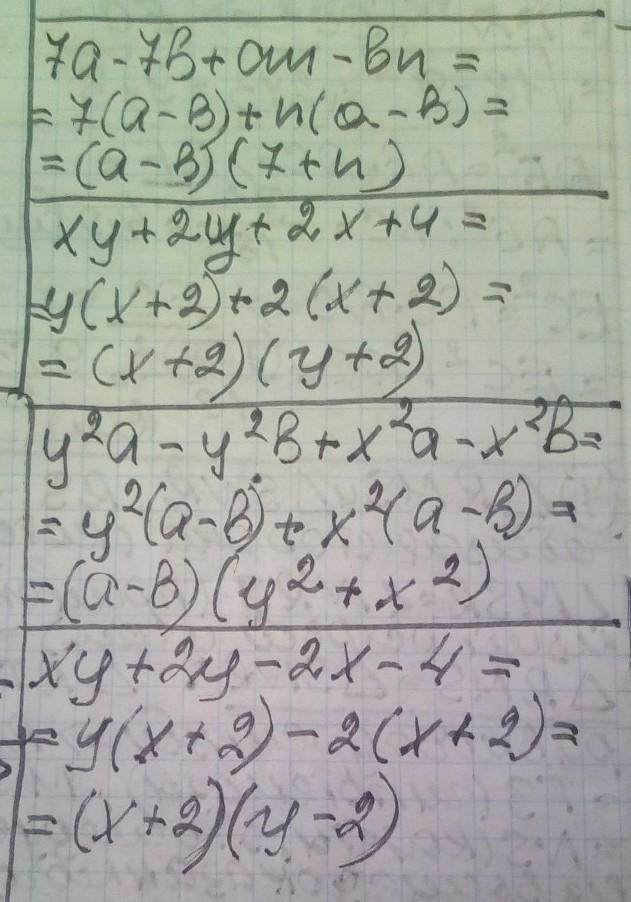 7a-7b+an-bn=
=7(a-b)+n(a-b)=
=(a-b)(7+n)
xy+2y+2x+4=
=y(x+2)+2(x+2)=
=(x+2)(y+2)
y²a-y²b+x²a-x²b=
=y²(a-b)+x²(a-b)=
=(a-b)(y²+x²)
xy+2y-2x-4=
=y(x+2)-2(x+2)=
=(x+2)(y-2)